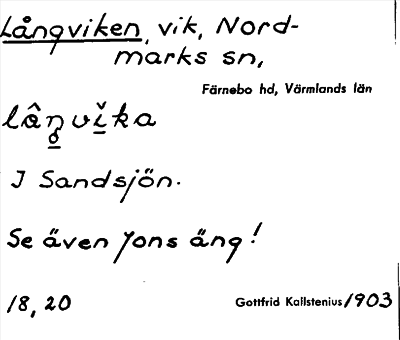 Långviken, vik, Nord-
marks sn,
Färnebo hd, Värmlands län
I Sandsjön.
Se även Jons äng!
18, 20
Gottfrid Kallstenius 1903